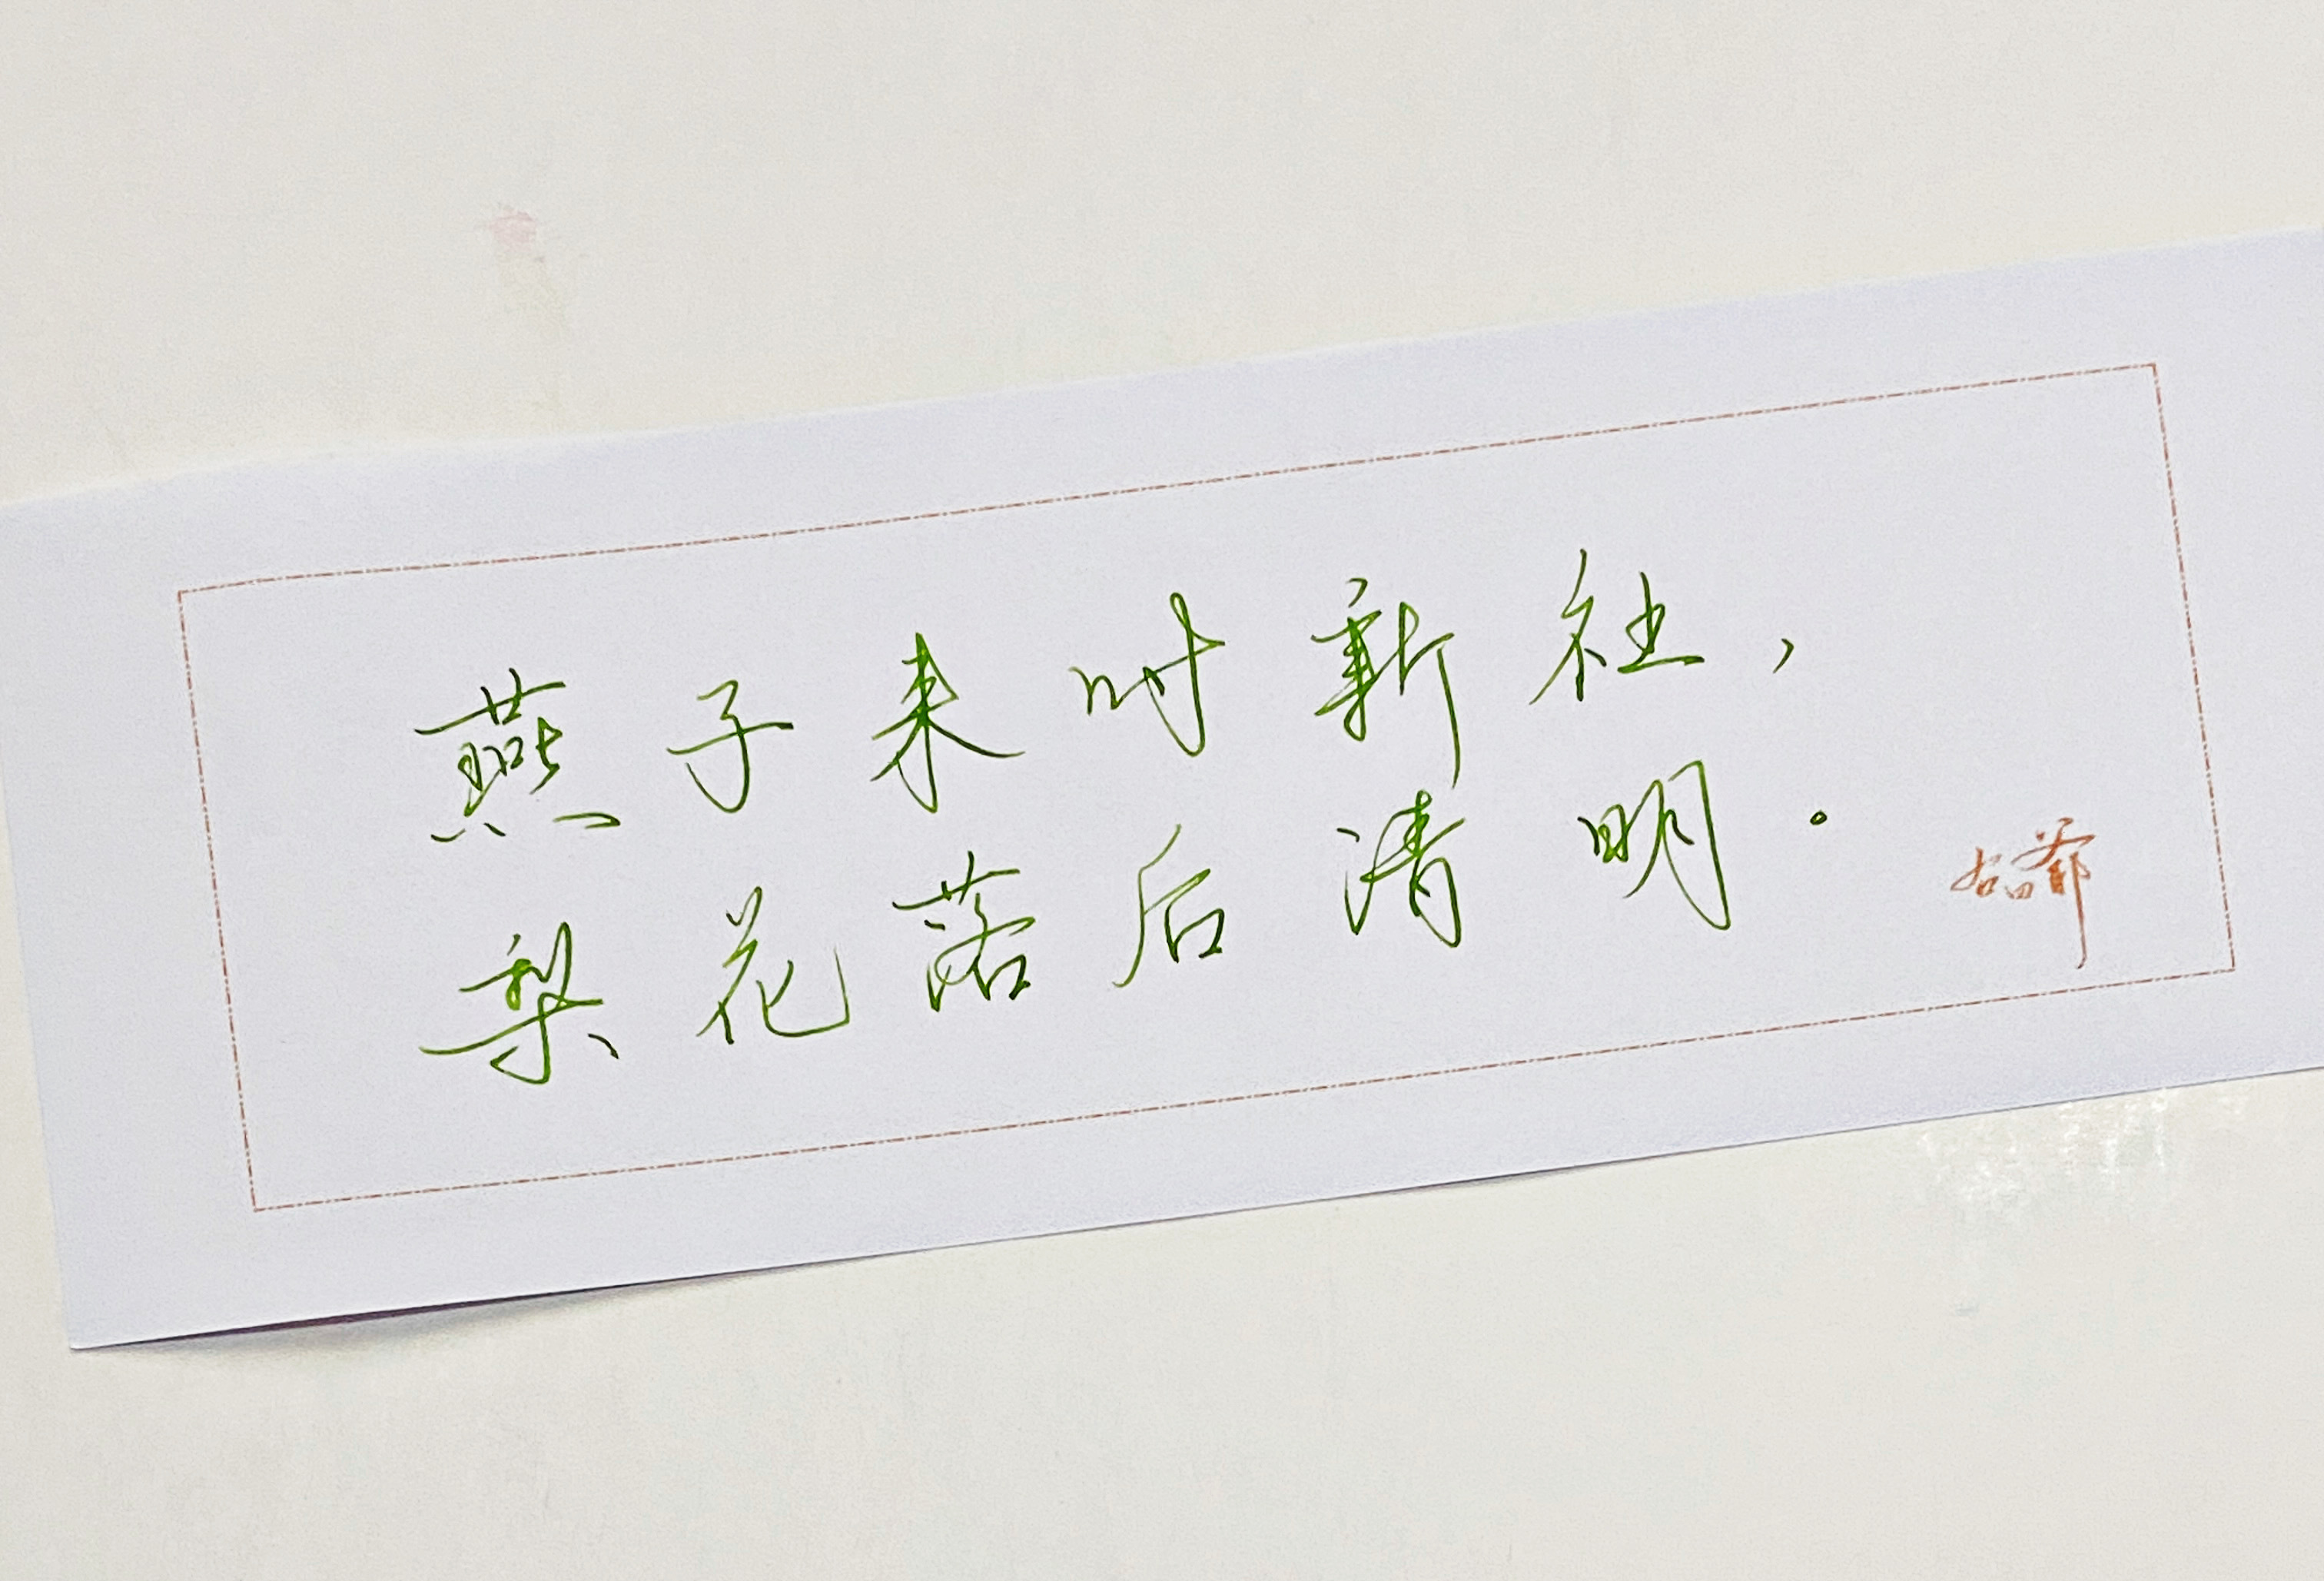 燕子来时新社，
梨花落后清明。